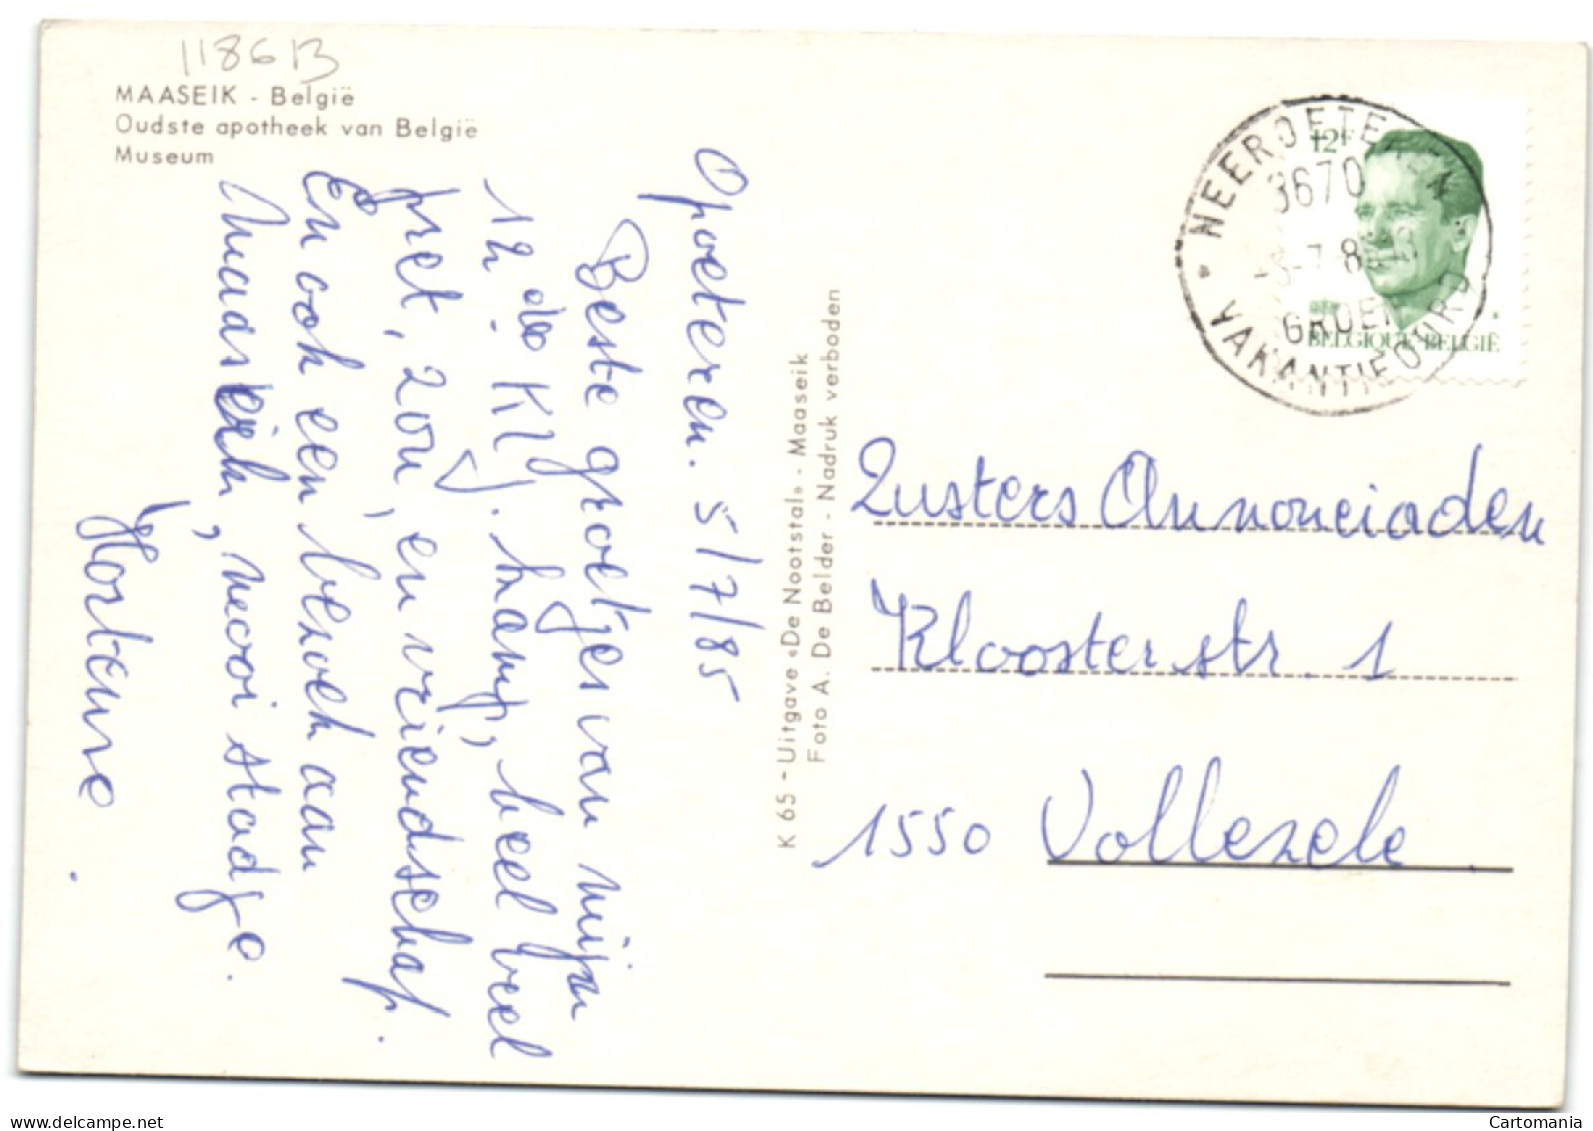 118613
MAASEIK - België
Oudste apotheek van België
Museum
Opoeteren. 5/7/85
Beste groetjes van mijn
12 de KVJ. kamp, heel veel
pret, zon, en vriendschap.
En ook een bezoek aan
Maaseik, mooi stadje.
Hortense.
K 65 - Uitgave «De Nootstal» - Maaseik
Foto A. De Belder - Nadruk verboden
NEEROETEREN
3670
-7-8
GROEN
VAKANTIEOORD
12F
BELGIQUE-BELGIË
Zusters Annonciaden
Klooster str. 1
1550 Vollezele
www.delcampe.net
Cartomania